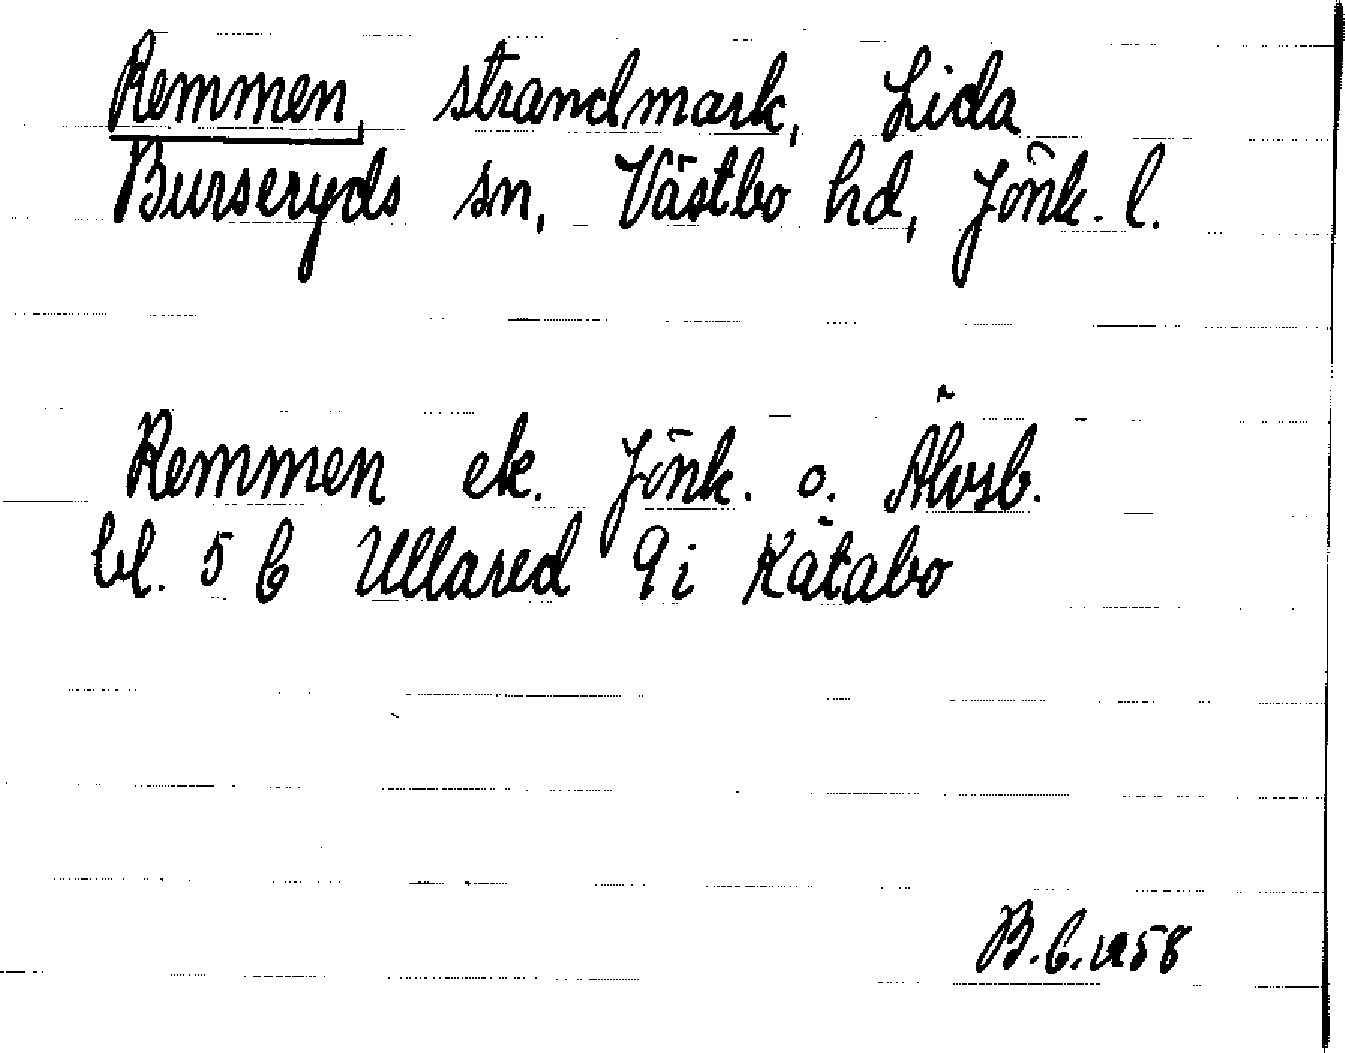 Remmen, strandmark, Lida
Burseryds sn, Västbo hd, Jönk. l.
Remmen ek. Jönk. o. Älvsb.
bl. 5 C Ullared 9i Kåtabo
B.E. 1958